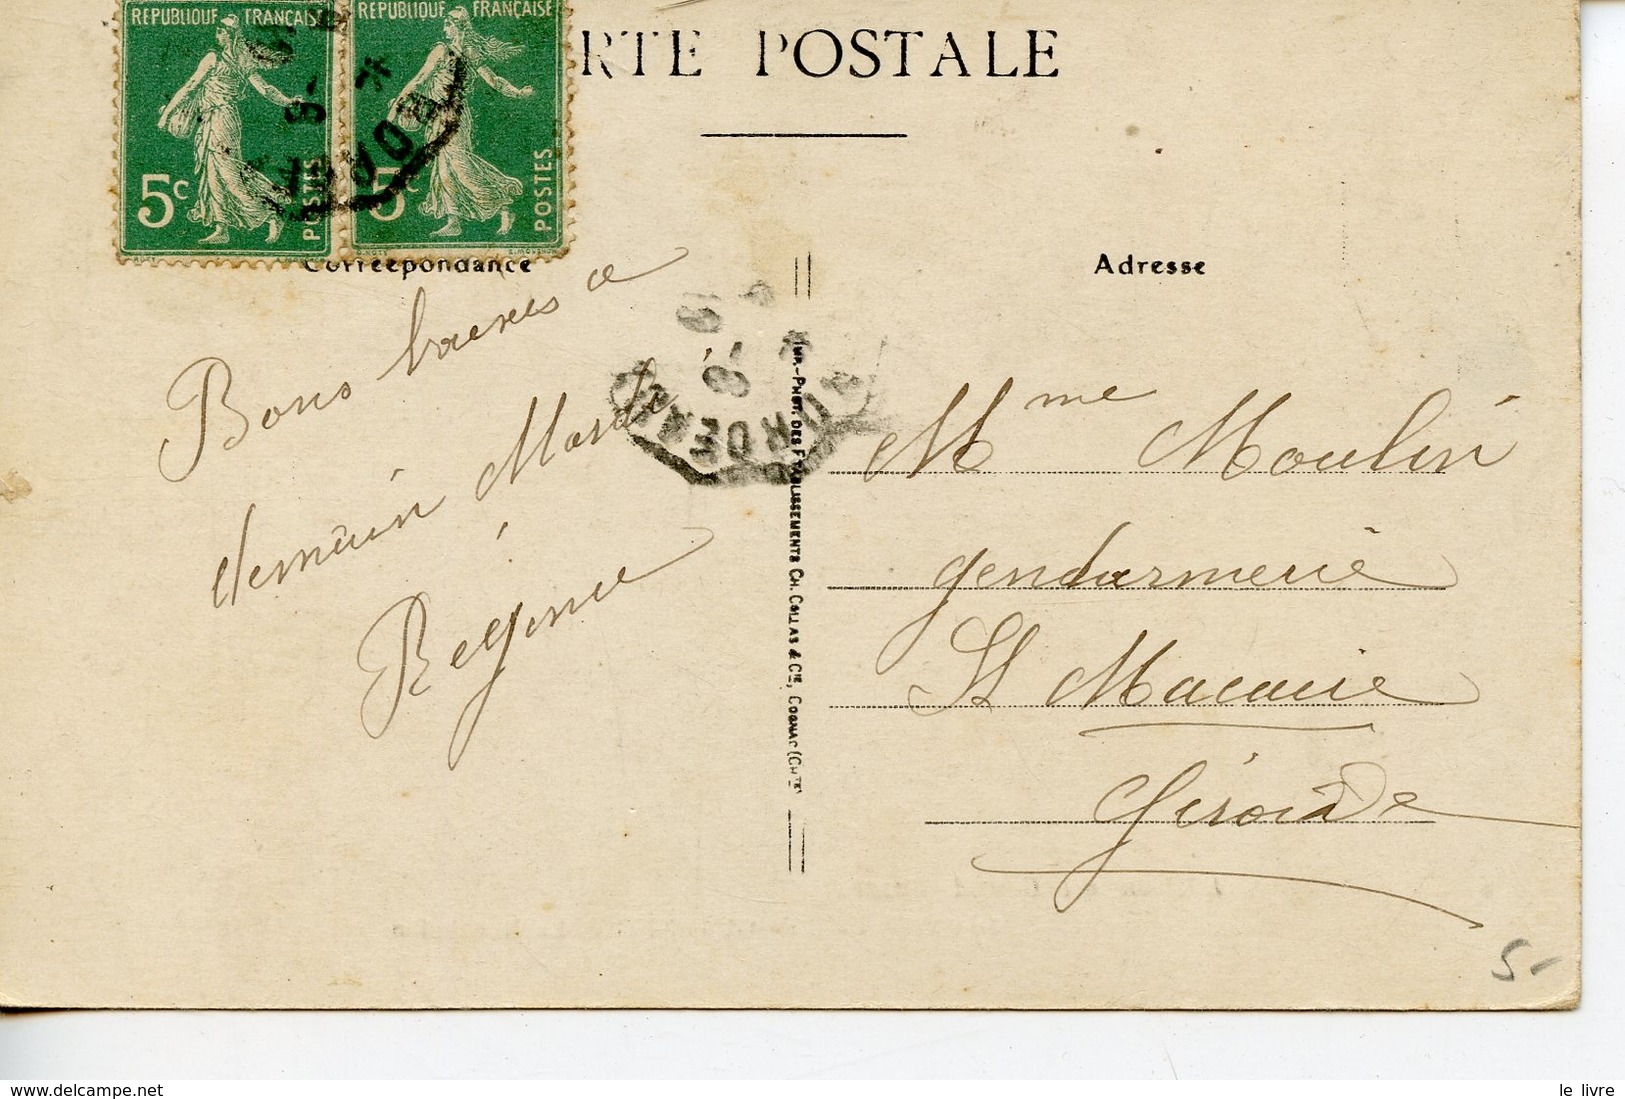 REPUBLIQUE FRANÇAISE
REPUBLIQUE FRANÇAISE
5c
POSTES
5c
POSTES
RTE POSTALE
Correspondance
Adresse
Bons baisers a
demain Mardi
Régine
IMP.-PHOT. DES ETABLISSEMENTS CH. COLLAS & CIE, COGNAC (CHTE)
Mme Moulin
gendarmerie
St Macaire
Gironde
5-
www.delcampe.net
le livre